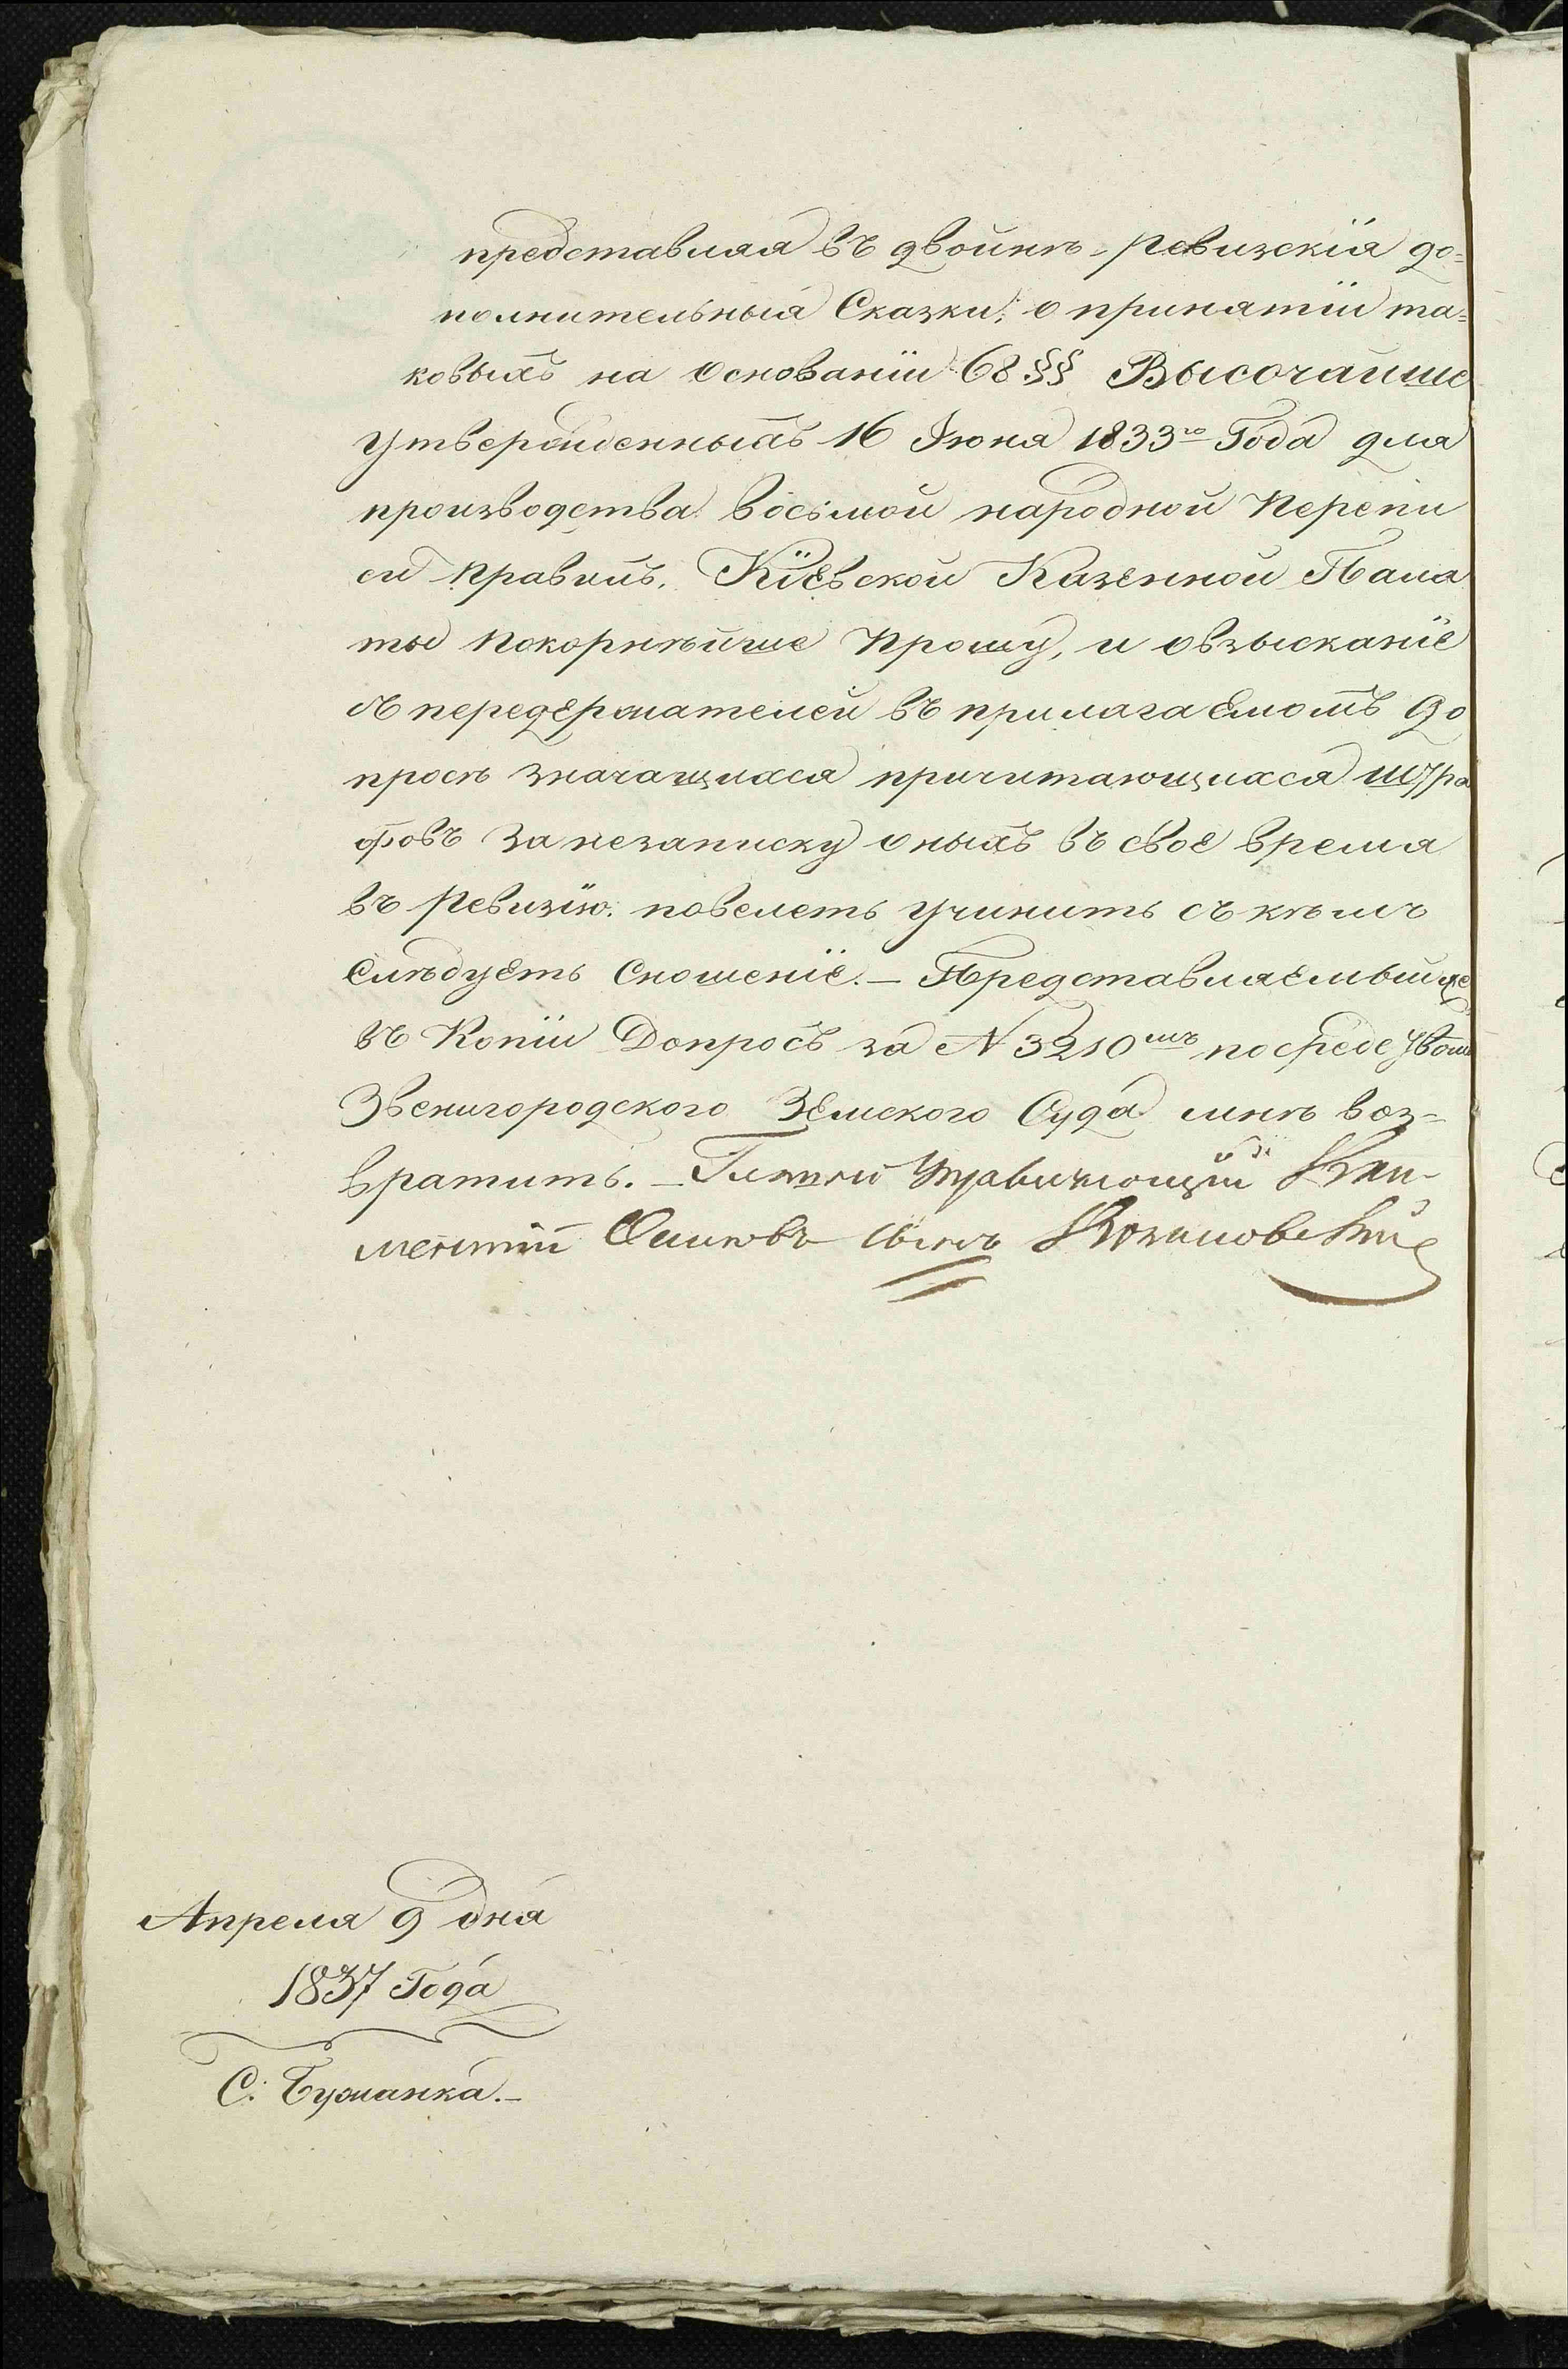 представляя въ двойнѣ Ревизскія до=
полнительныя Сказки; о принятіи та=
ковыхъ на основаніи 68 §§ Высочайше
утвержденныхъ 16 Іюня 1833го Года для
производства восьмой народной Перепи
си Правилъ, Кіевской Казенной Пала
ты Покорнѣйше Прошу, и овзысканіе
съ передержателей въ прилагаемомъ До
просѣ значащихся причитающихся штра
фовъ за незаписку оныхъ въ свое время
въ Ревизію. повелеть учинить съ кѣмъ
Слѣдуетъ Сношеніе. — Представляемый же
въ Копіи Допросъ за N 3210мъ посредствомъ
Звенигородского Земского Суда мнѣ воз-
вратить. — Главный Управляющій Кли-
ментій Осиповъ сынъ Козловскій
Апреля 9 дня
1837 Года
С. Бужанка. —